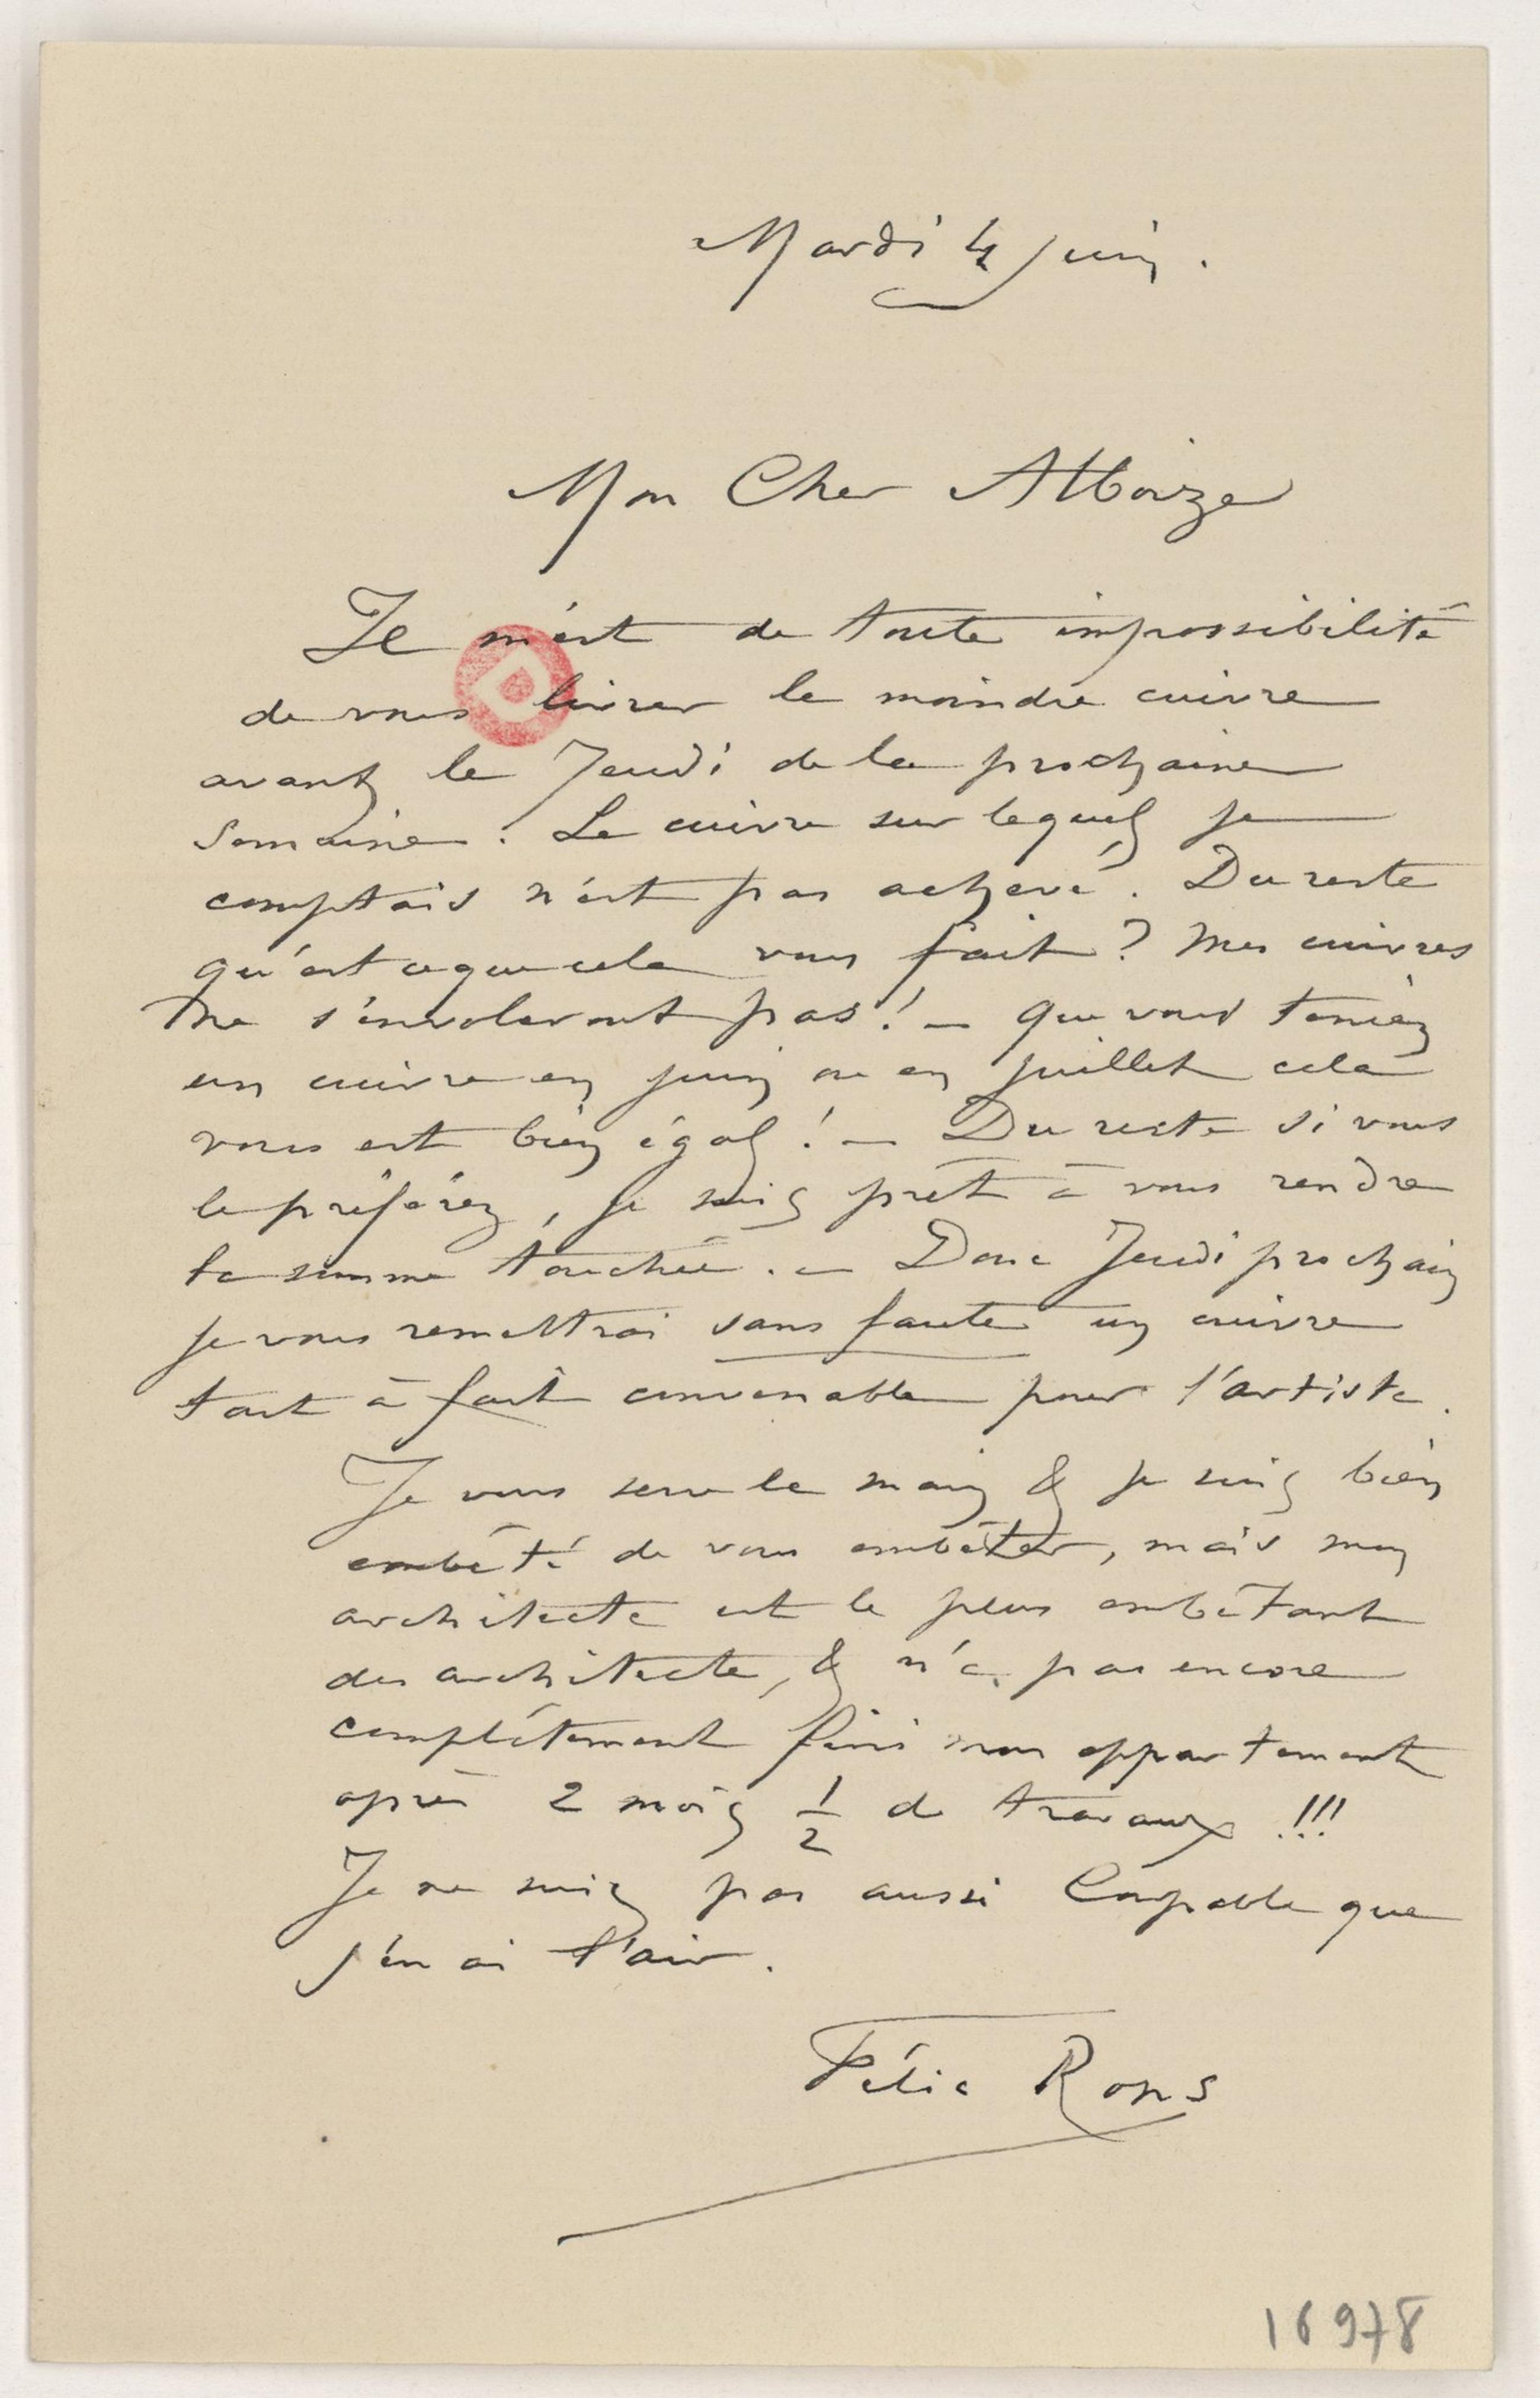 Mardi 4 juin.
Mon Cher Alboize
Il m'est de toute impossibilité
de vous livrer le moindre cuivre
avant le Jeudi de la prochaine
semaine. Le cuivre sur lequel je
comptais n'est pas achevé. Du reste
qu'est ce que cela vous fait? Mes cuivres
ne s'envoleront pas! — Que vous teniez
un cuivre en juin ou en juillet cela
vous est bien égal! — Du reste si vous
le préférez, je suis prêt à vous rendre
la somme touchée. — Donc Jeudi prochain
je vous remettrai sans faute un cuivre
tout à fait convenable pour l'artiste.
Je vous serre la main & je suis bien
embêté de vous embêter, mais mon
architecte est le plus embêtant
des architecte, & n'a pas encore
complètement fini mon appartement
après 2 mois 1/2 de travaux!!!
Je ne suis pas aussi Coupable que
j'en ai l'air.
Félic Rops
16978